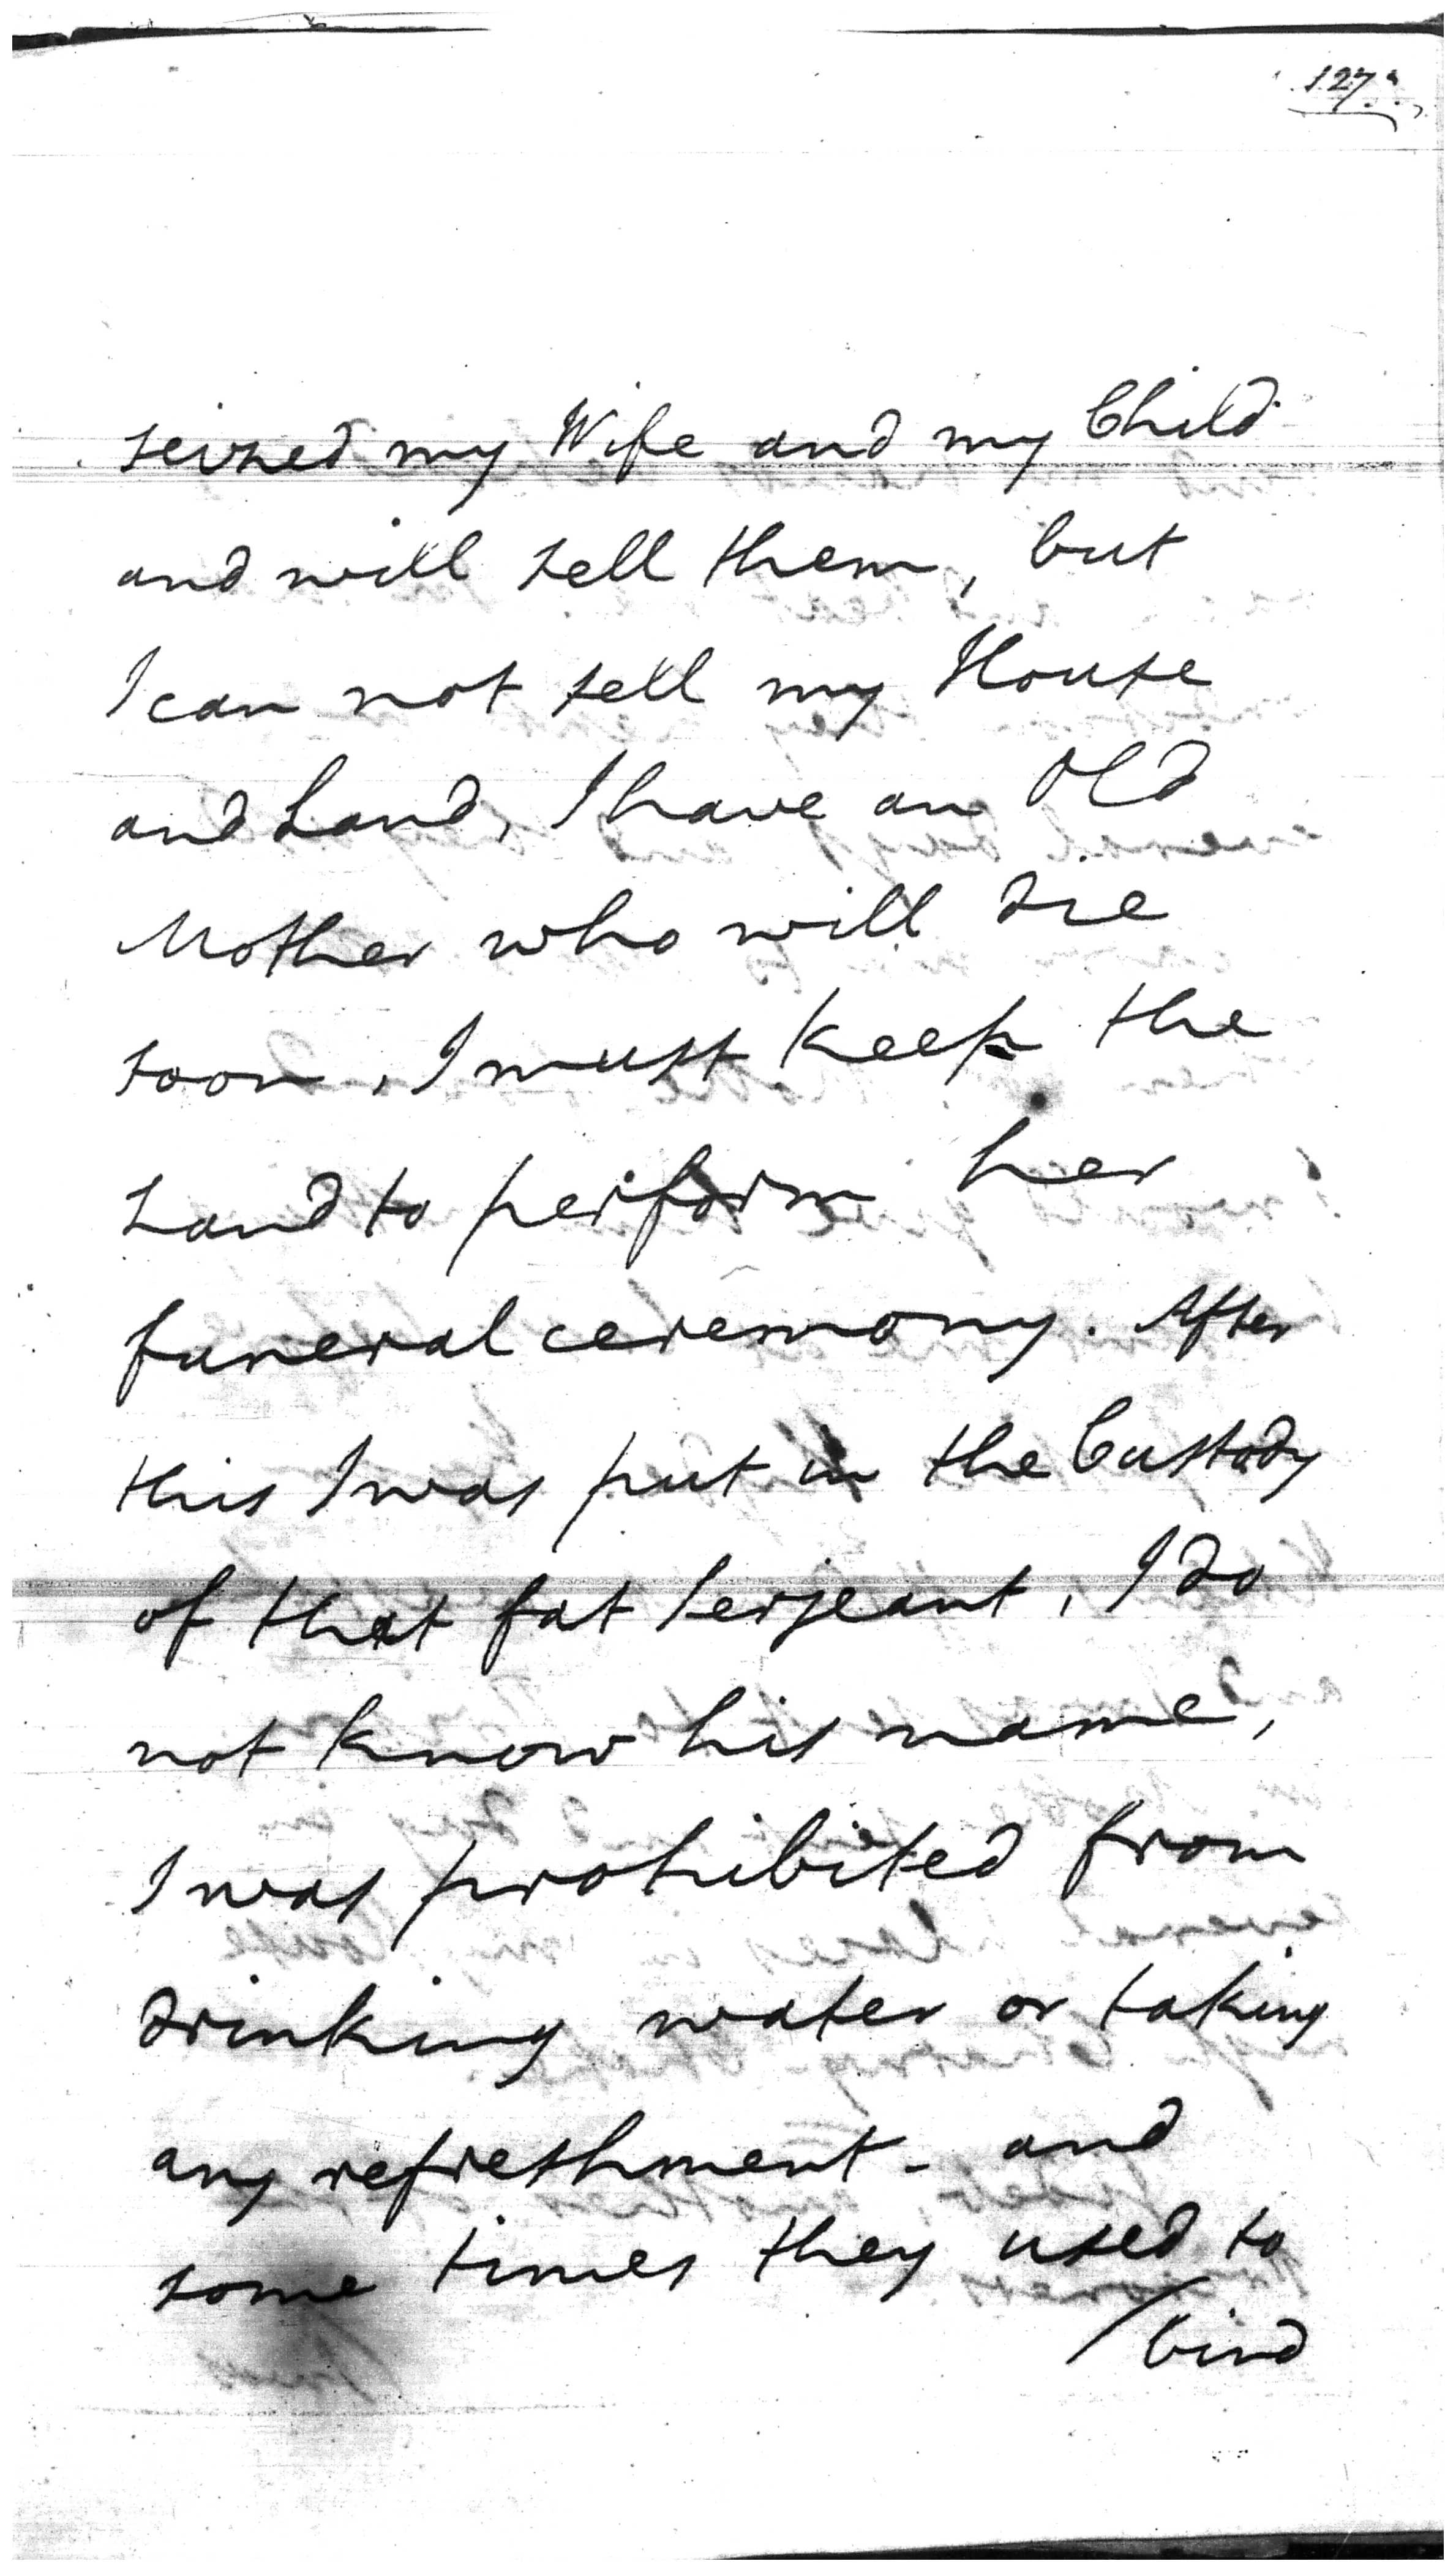 127.
seized my Wife and my Child
and will sell them, but
I can not sell my House
and Land, I have an Old
Mother who will die
soon, I must keep the
Land to perform her
funeral ceremony. After
this I was put in the Custody
of that fat Serjeant, I do
not know his name,
I was prohibited from
drinking water or taking
any refreshment - and
some times they used to
/bind